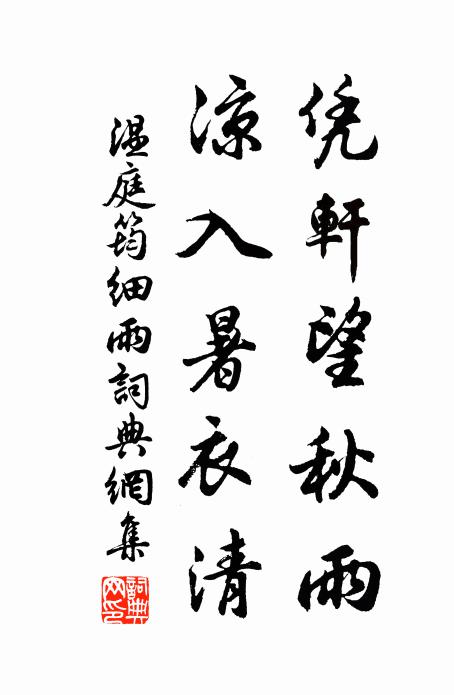 凭軒望秋雨
涼入暑衣清
温庭筠細雨詞典網集
詞典網印